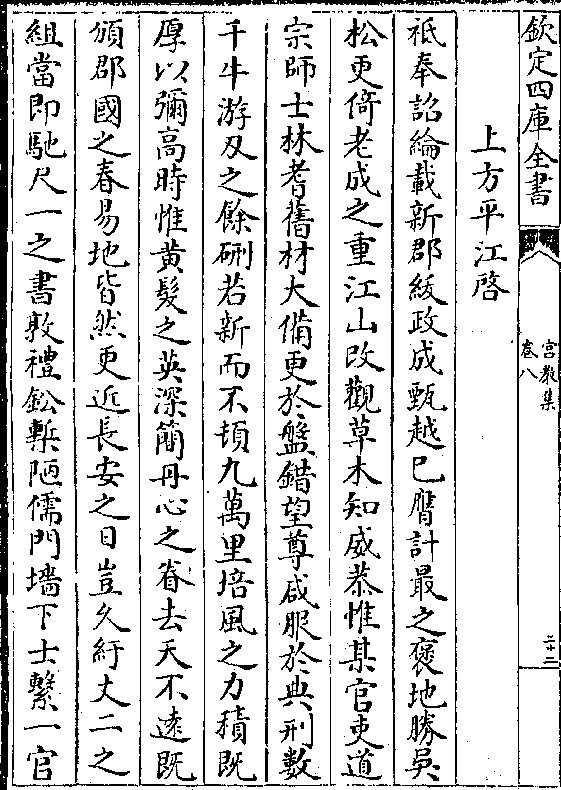 欽定四庫全書
宮教集
卷八
二十二
上方平江啓
祇奉詔綸載新郡紱政成甄越已膺計最之褒地勝吳
松更倚老成之重江山改觀草木知威恭惟某官吏道
宗師士林耆舊材大備更於盤錯望尊咸服於典刑數
千牛游刄之餘硎若新而不頓九萬里培風之力積既
厚以彌高時惟黄髮之英深簡丹心之眷去天不遠既
頒郡國之春易地皆然更近長安之日豈久紆丈二之
組當即馳尺一之書敦禮鉛槧陋儒門墻下士繫一官